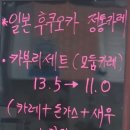 *일본 후쿠오카 정통카레
• 카부리세트 (모둠카레)
13.5 → 11.0
(카레+돈가스+새우